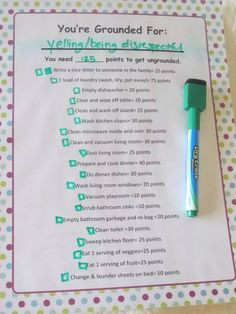 You're Grounded For:
Yelling/being disrespectful
You need 125 points to get ungrounded.
Write a nice letter to someone in the family= 25 points
1 load of laundry (wash, dry, put away)= 75 points
Empty dishwasher = 20 points
Clear and wipe off table= 20 points
Clean and wash off island= 25 points
Wash kitchen chairs= 30 points
Clean microwave inside and out= 30 points
Clean and vacuum living room= 30 points
Dust living room= 25 points
Prepare and cook dinner= 40 points
Do dinner dishes= 30 points
Wash living room windows= 20 points
Vacuum playroom= 10 points
Scrub bathroom sinks= 10 points
Empty bathroom garbage and re-bag =20 points
Clean toilet =30 points
Sweep kitchen floor= 25 points
Eat 1 serving of veggies=25 points
Eat 1 serving of fruit=25 points
Change & launder sheets on bed= 50 points